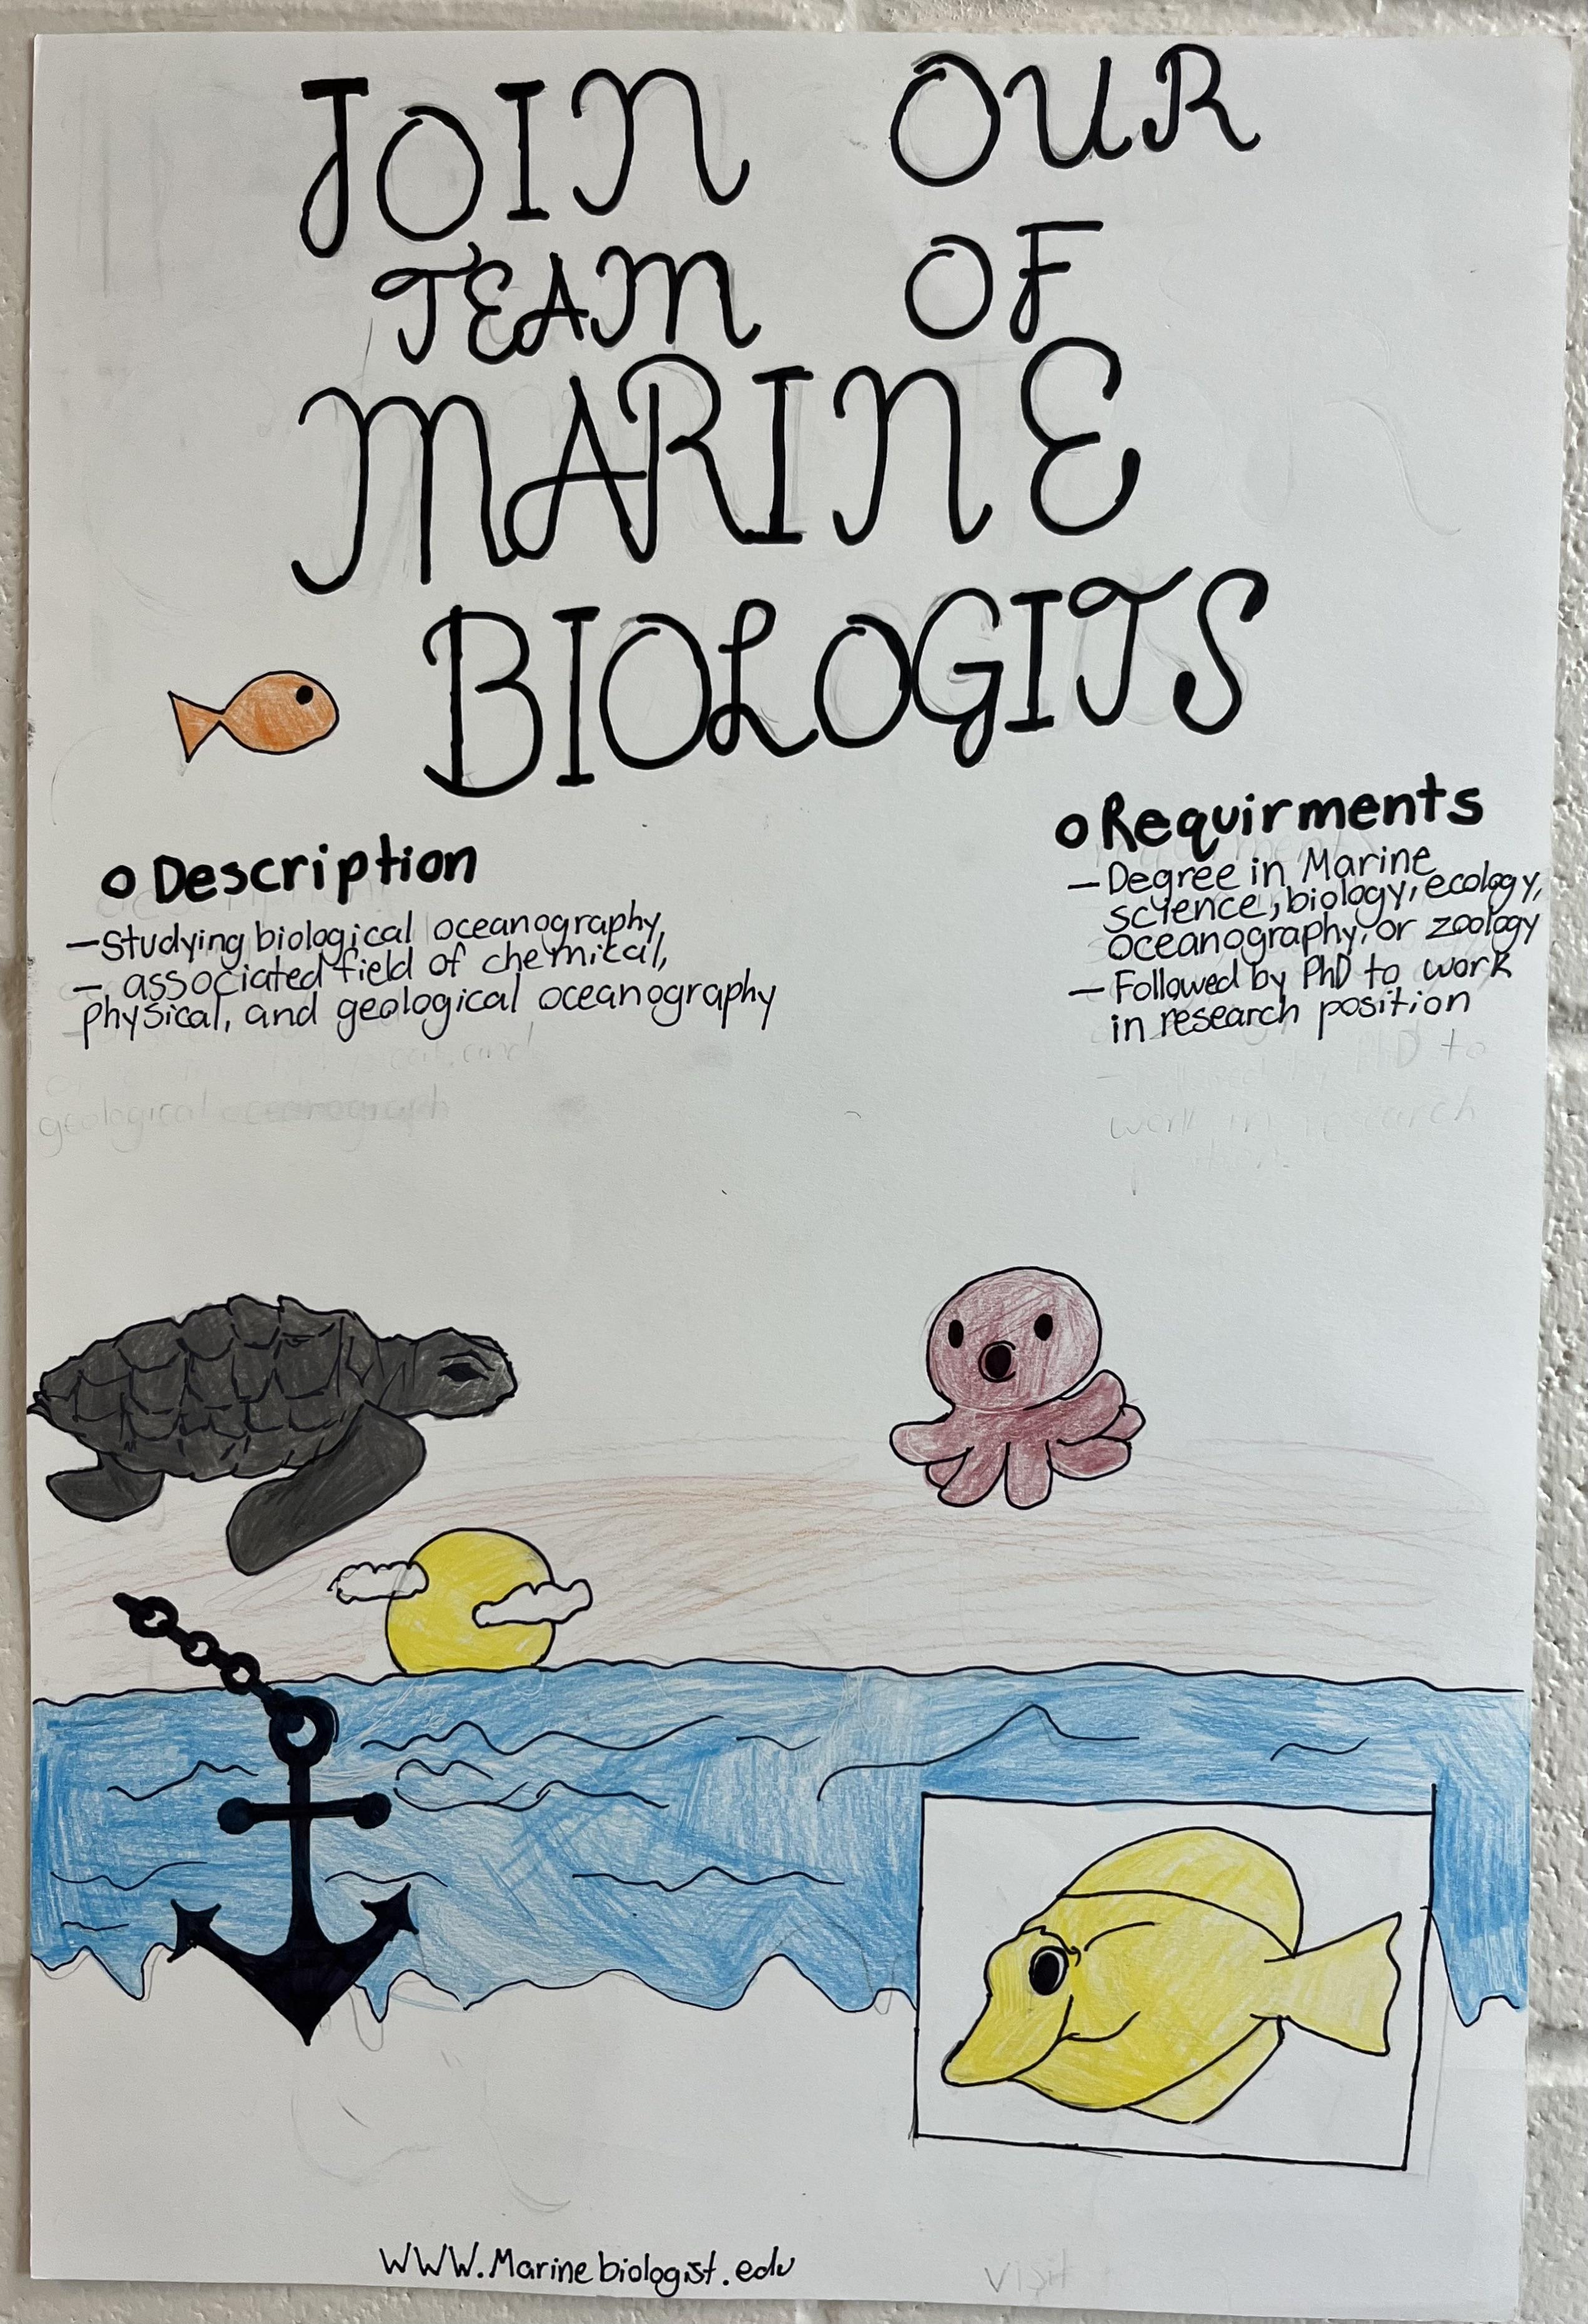 JOIN OUR
TEAM OF
MARINE
BIOLOGITS
Description
—Studying biological oceanography,
— associated field of chemical,
physical, and geological oceanography
Requirments
—Degree in Marine
science, biology, ecology,
oceanography, or zoology
—Followed by PhD to work
in research position
geological oceanograph
work in research
WWW.Marinebiologist.edu
visit